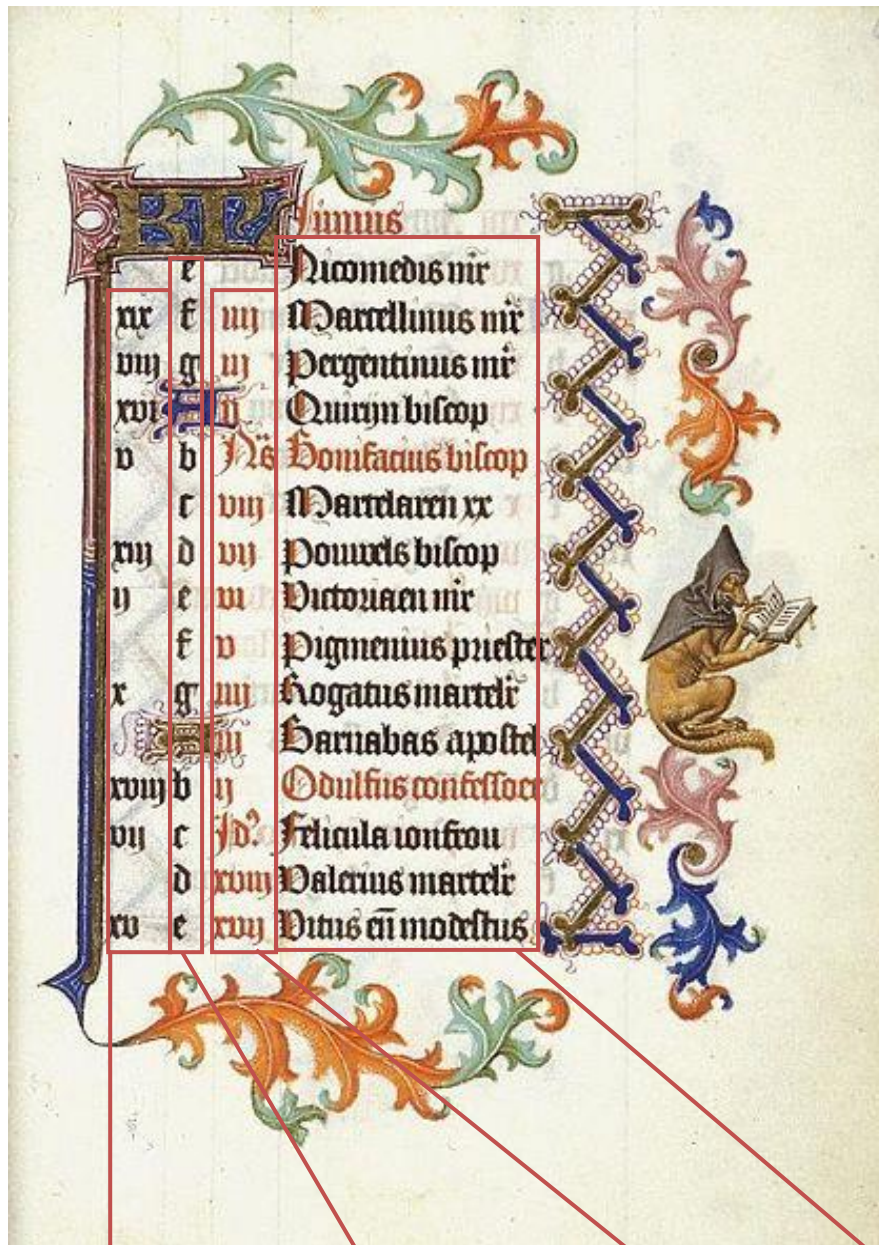 KL Junius
e Nicomedis mr̄
xix f iiij Marcellinus mr̄
viij g iij Pergentinus mr̄
xvi A ij Quirijn biscop
v b No͞s Bonifacius biscop
c viij Martelaren xx
xiij d vij Pouwels biscop
ij e vi Victoriaen mr̄
f v Pigmenius priester
x g iiij Rogatus martelr̄
A iij Barnabas apostel
xviij b ij Odulfus confessoer
vij c Id⁹ Felicula ionfrou
d xviij Valerius martelr̄
xv e xvij Vitus en̄ modestus